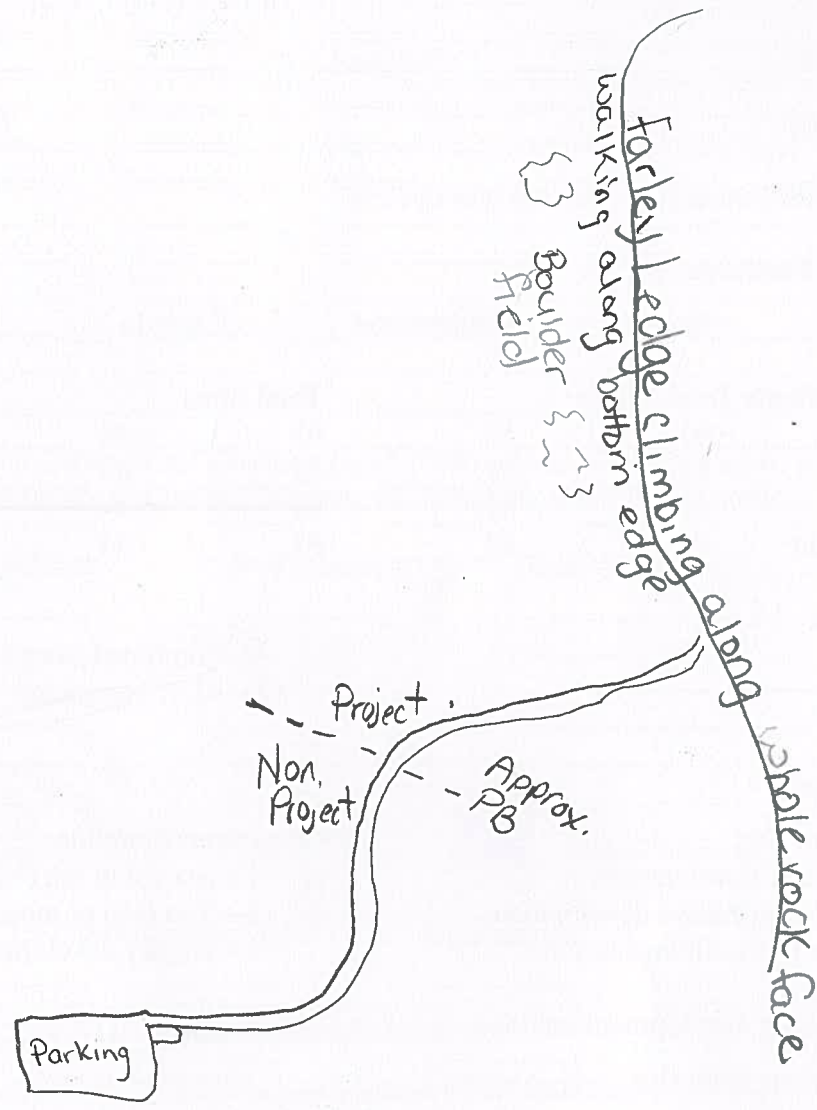 Farley Ledge climbing along whole rock face
walking along bottom edge
Boulder
field
Project
Non.
Project
Approx.
PB
Parking